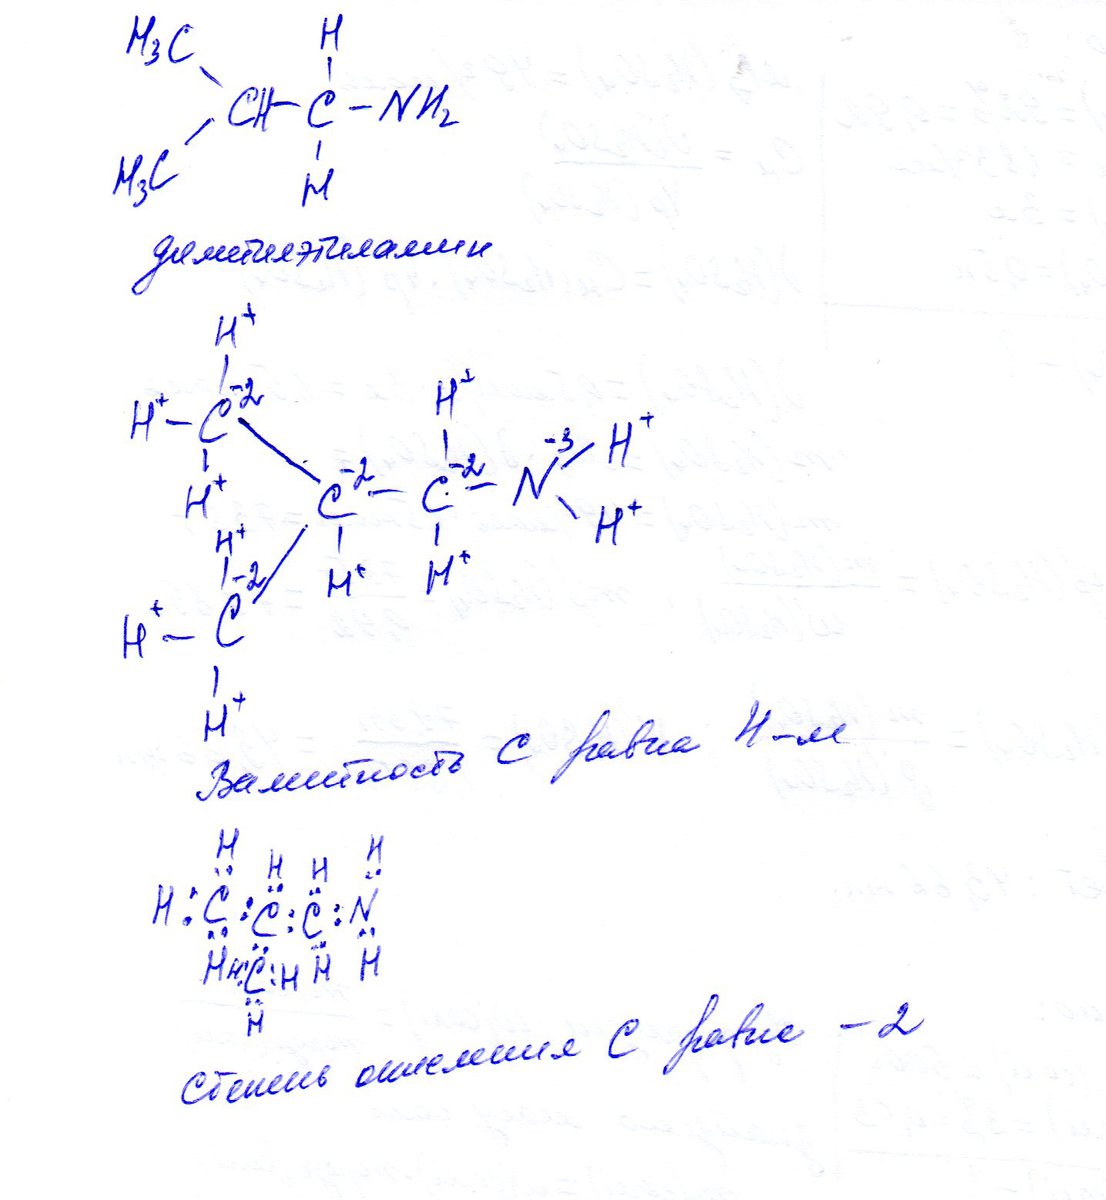 H₃C
H
CH – C – NH₂
H₃C
H
диметилэтиламин
H⁺
H⁺ – C⁻²
H⁺
H⁺
H⁺
C⁻² – C⁻² – N⁻³
H⁺
H⁺
H⁺
H⁺
H⁺
H⁺ – C⁻²
H⁺
Валентность С равна 4-м
H
H
H
H
H : C : C : C : N
H H : C : H H H
H
Степень окисления С равна -2